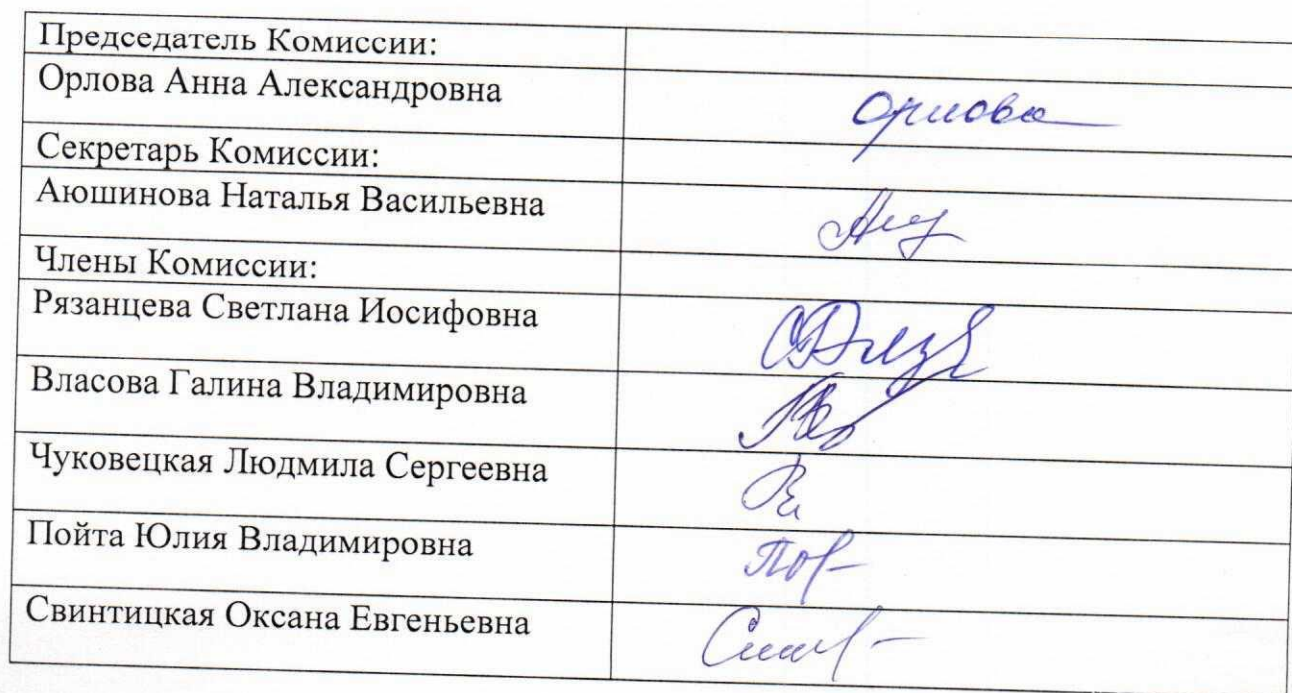 Председатель Комиссии:
Орлова Анна Александровна Орлова
Секретарь Комиссии:
Аюшинова Наталья Васильевна
Члены Комиссии:
Рязанцева Светлана Иосифовна
Власова Галина Владимировна
Чуковецкая Людмила Сергеевна
Пойта Юлия Владимировна
Свинтицкая Оксана Евгеньевна